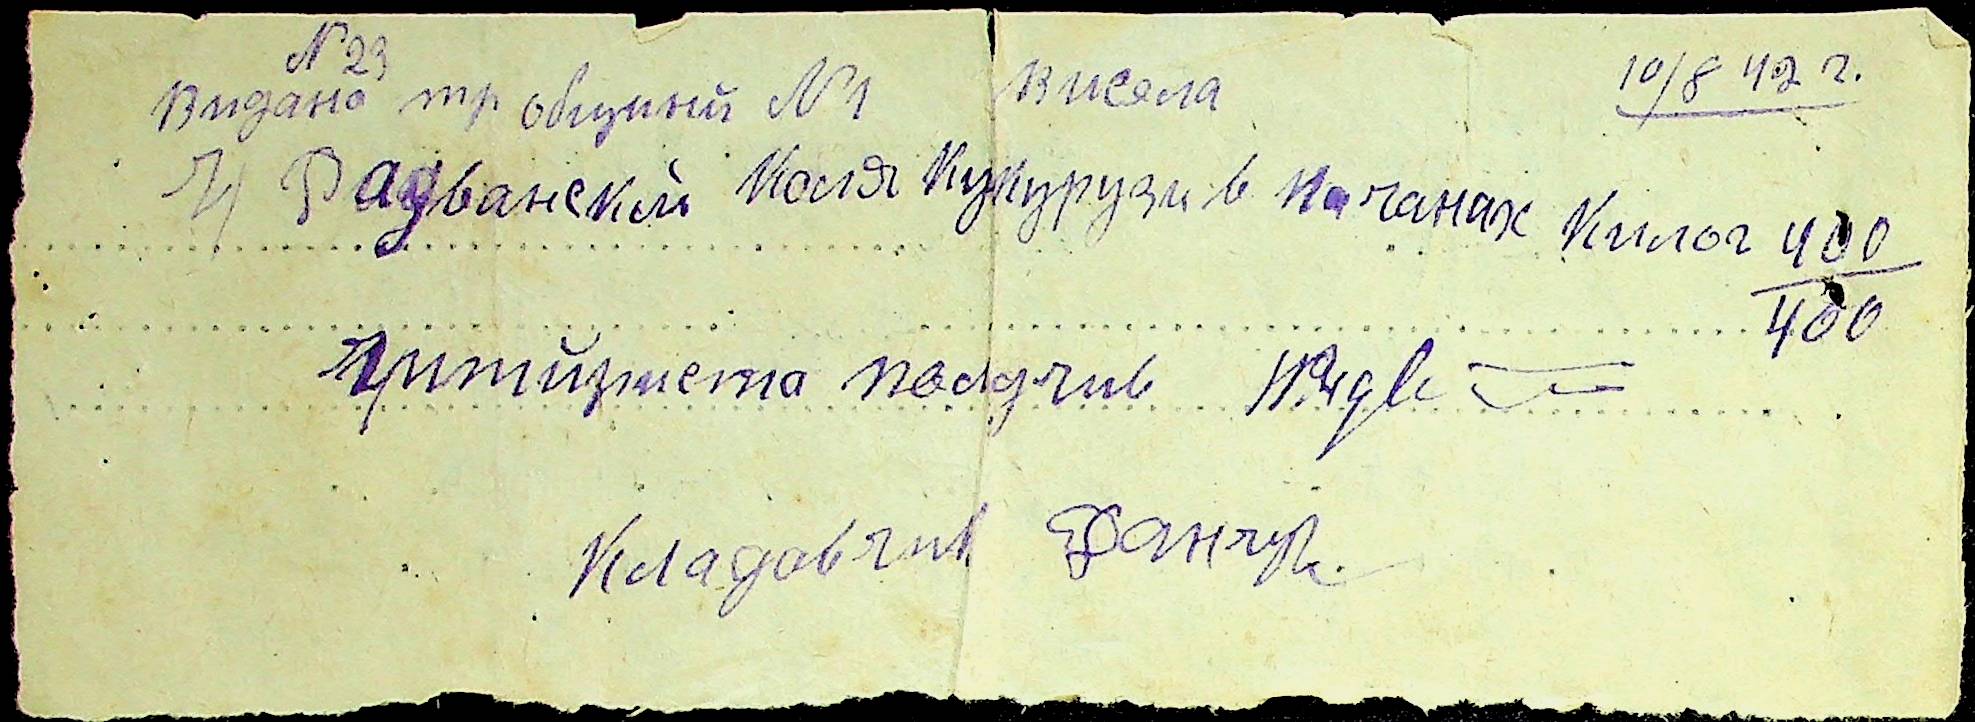 N 23
Видано тр общиний N1 Висела 10/8 42 г.
Радванский Коля Кукурузи в Качанах Килог 400
400
получив
Кладовчик Данчук